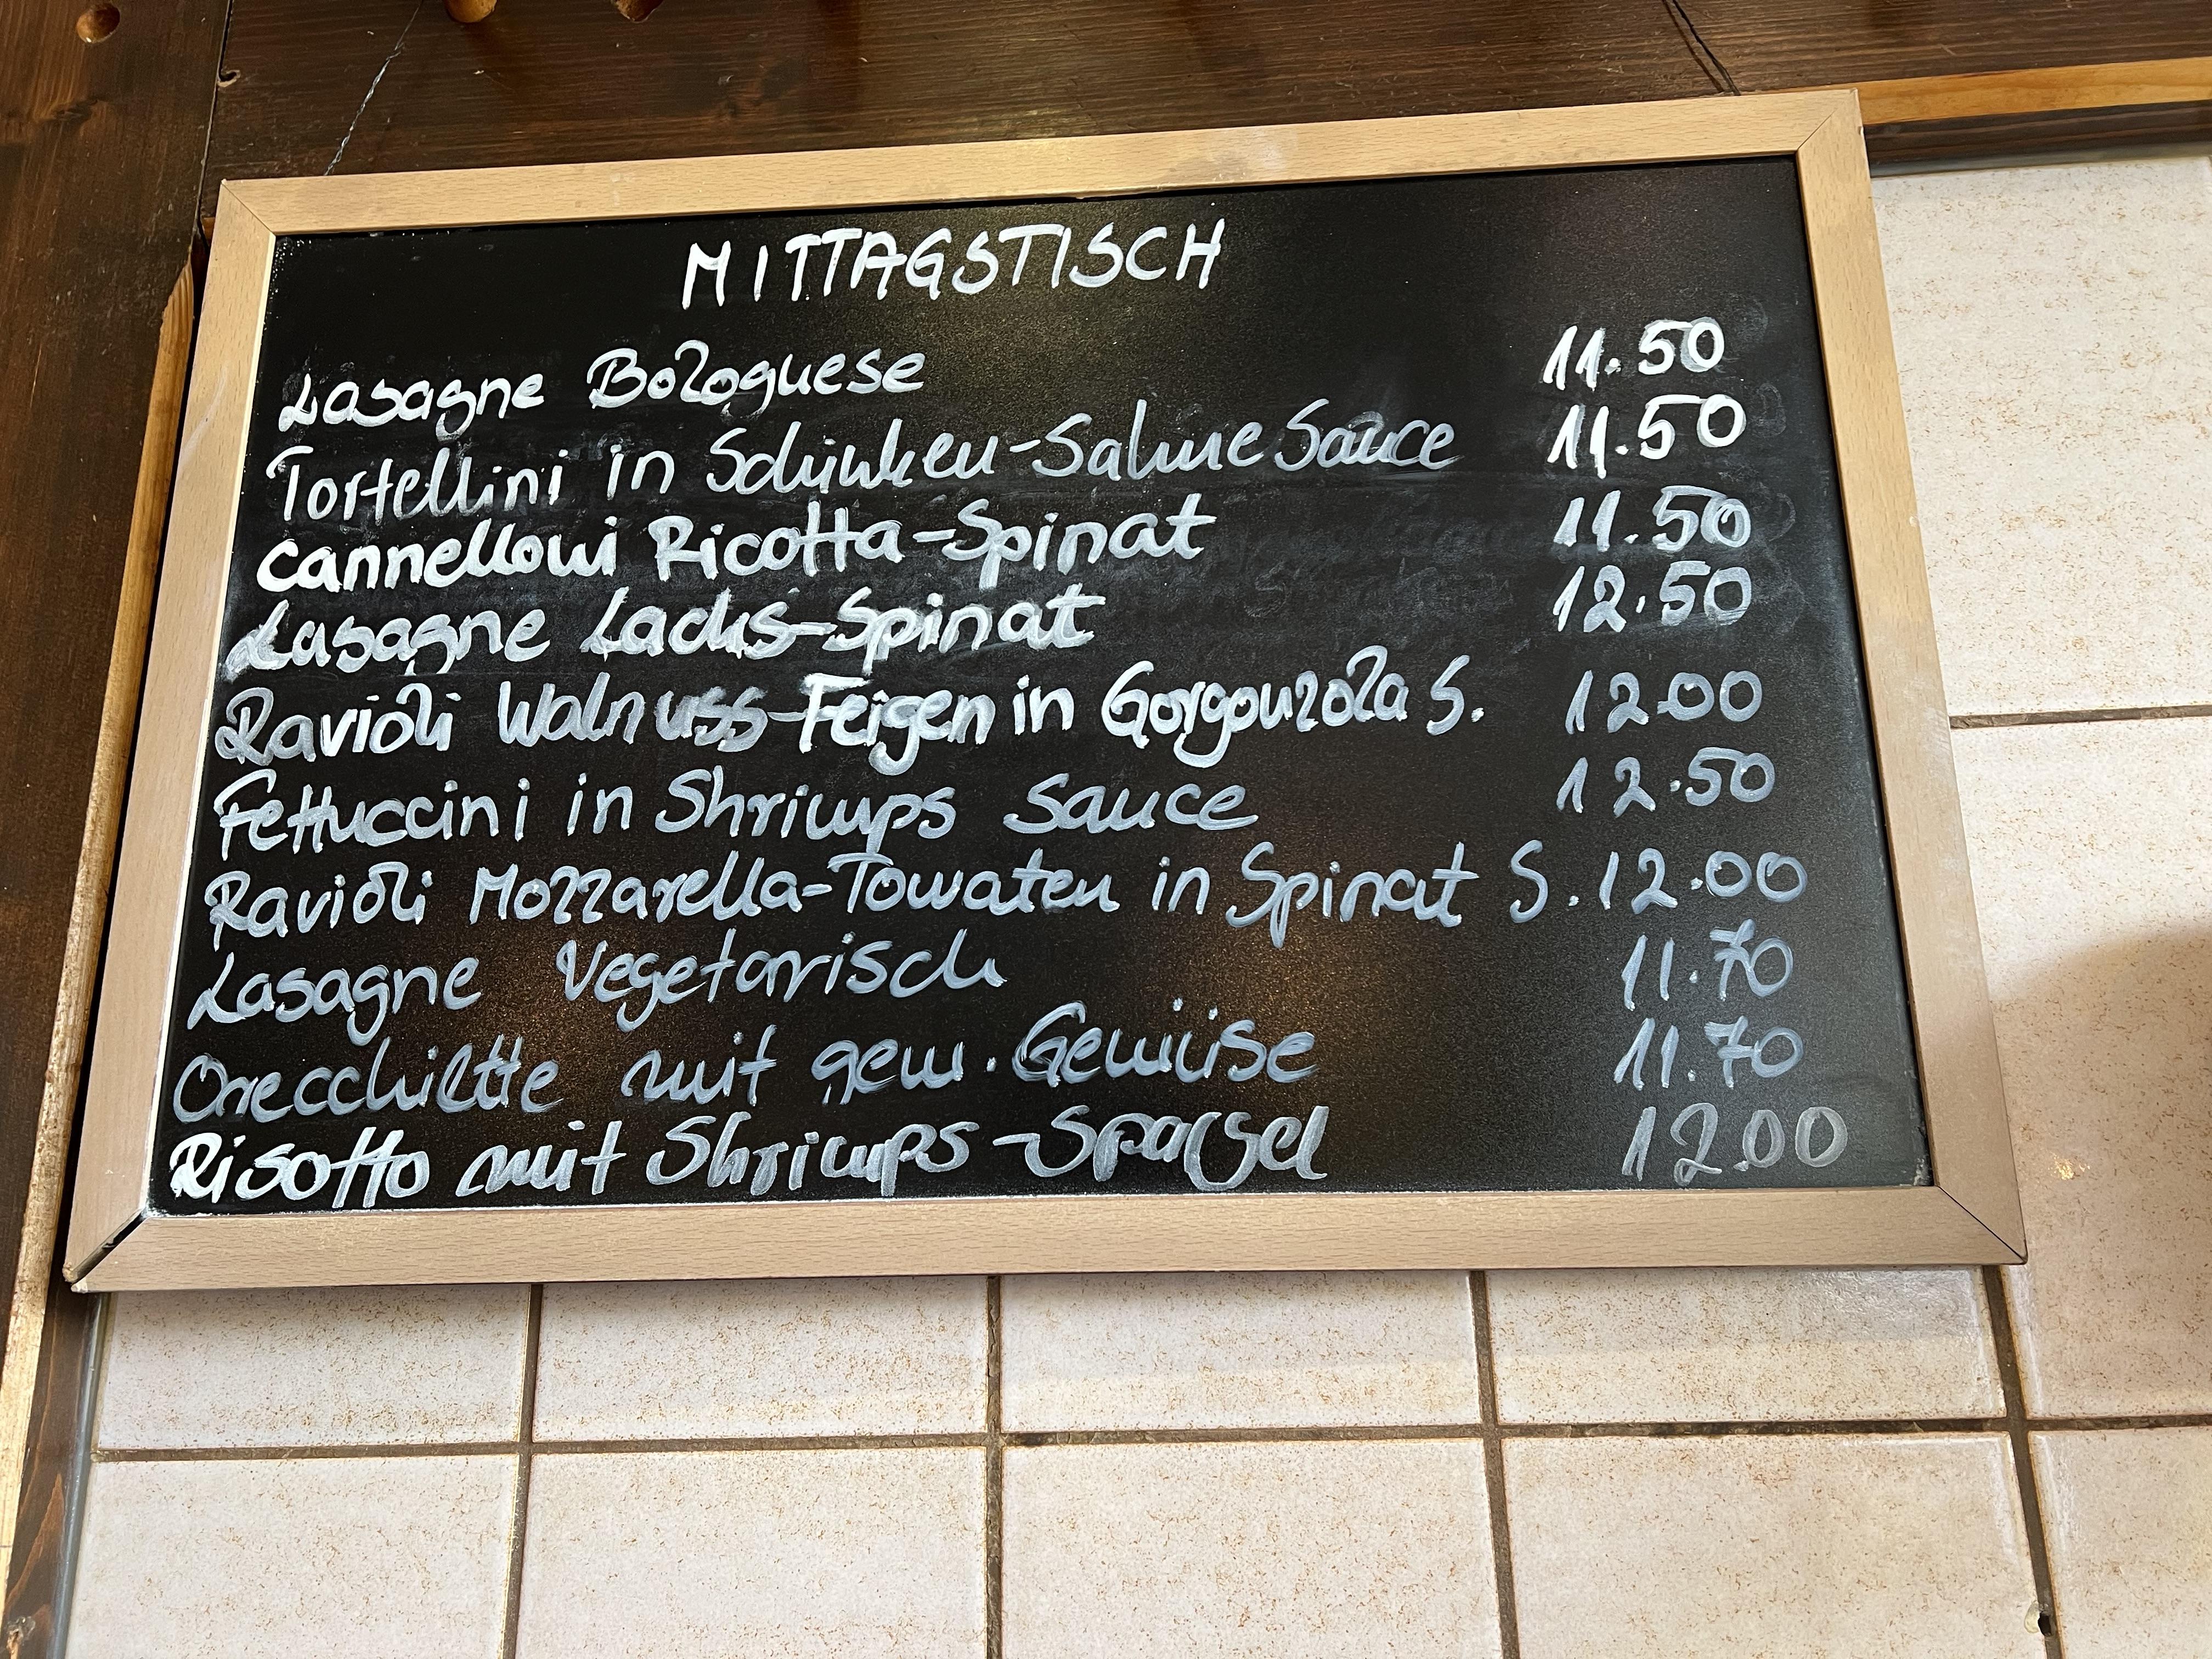 MITTAGSTISCH
Lasagne Bolognese 11.50
Tortellini in Schinken-Sahne Sauce 11.50
Cannelloni Ricotta-Spinat 11.50
Lasagne Lachs-Spinat 12.50
Ravioli Walnuss-Feigen in Gorgonzola S. 12.00
Fettuccini in Shrimps Sauce 12.50
Ravioli Mozzarella-Tomaten in Spinat S. 12.00
Lasagne Vegetarisch 11.70
Orecchiette mit gem. Gemüse 11.70
Risotto mit Shrimps-Spargel 12.00